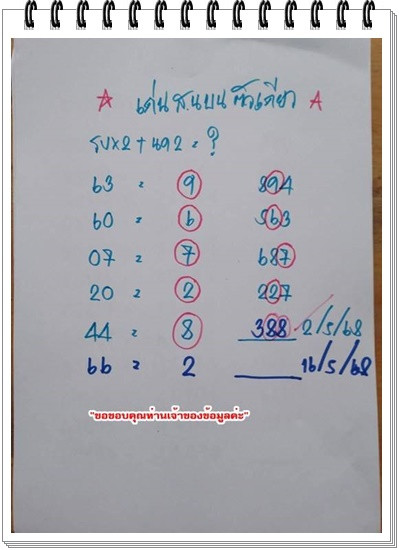 ☆ เด่น ส.น บน ตัวเดียว ☆
รูบx2+ผล2 = ?
63 = 9 894
60 = 6 563
07 = 7 687
20 = 2 227
44 = 8 388 2/5/68
66 = 2 16/5/68
"ขอขอบคุณท่านเจ้าของข้อมูลค่ะ"